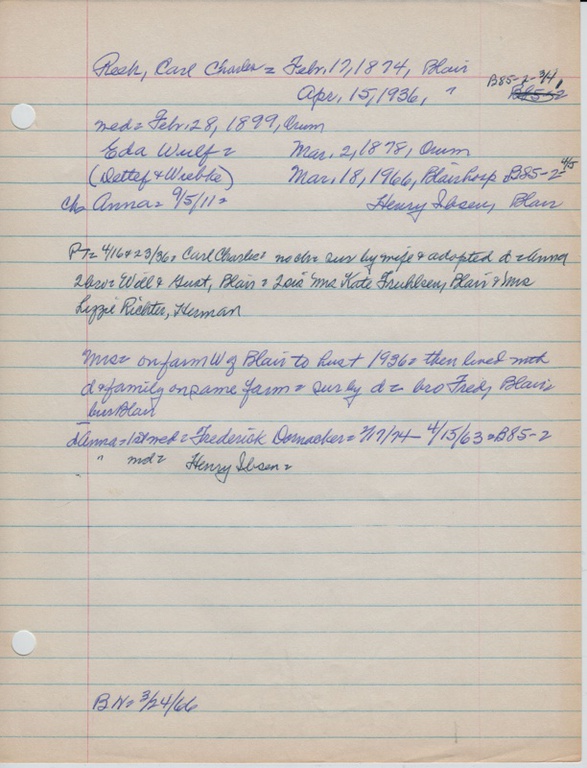 Resh, Carl Charles = Febr. 17, 1874, Blair
B85-2-3/4
Apr. 15, 1936, "
B85-2
med = Febr. 28, 1899, Orum
Eda Wulf = Mar. 2, 1878, Orum
(Detlef & Wiebke) Mar. 18, 1966, Blair hosp B85-2-4/5
Ch Anna = 9/5/11 = Henry Ibsen, Blair
PT = 4/16 & 23/36 = Carl Charles = no ch = sur by wife & adopted d = Anna
2 bro = Will & Gust, Blair = 2 sis Mrs Kate Fruhlsen, Blair & Mrs
Lizzie Richter, Herman
Mrs = on farm W of Blair to husb 1936 = then lived with
d & family on same farm = sur by d = bro Fred, Blair =
bur Blair
d Anna = 1st med = Frederick = 7/17/74 - 4/15/63 = B85-2
" md = Henry Ibsen =
B N = 3/24/66